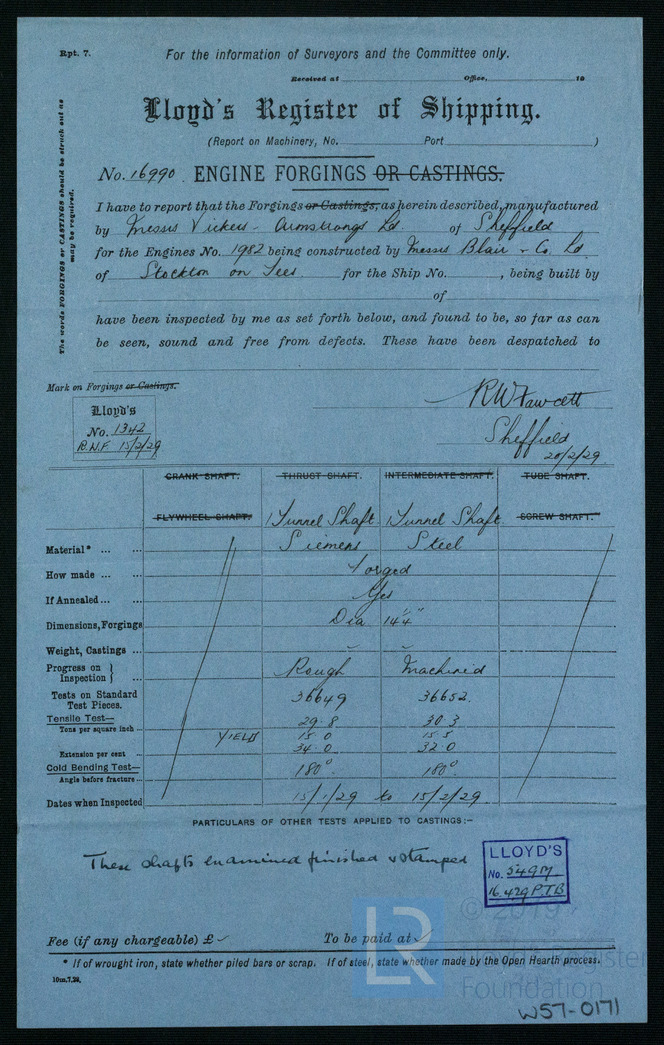 Rpt. 7.
For the information of Surveyors and the Committee only.
Received at Office, 19
Lloyd's Register of Shipping.
(Report on Machinery, No. Port )
No. 16990. ENGINE FORGINGS OR CASTINGS.
The words FORGINGS or CASTINGS should be struck out as
may be required.
I have to report that the Forgings or Castings, as herein described, manufactured
by Messrs Vickers-Armstrongs Ld of Sheffield
for the Engines No. 1982 being constructed by Messrs Blair & Co. Ld
of Stockton on Tees for the Ship No. , being built by
of
have been inspected by me as set forth below, and found to be, so far as can
be seen, sound and free from defects. These have been despatched to
Mark on Forgings or Castings.
Lloyd's
No. 1342
R.W.F. 15/2/29
RW Fawcett
Sheffield
20/2/29.
CRANK SHAFT. THRUST SHAFT. INTERMEDIATE SHAFT. TUBE SHAFT.
FLYWHEEL SHAFT. 1 Tunnel Shaft. 1 Tunnel Shaft. SCREW SHAFT.
Material* ... ... Siemens Steel
How made ... ... Forged
If Annealed ... ... Yes
Dimensions, Forgings Dia
Weight, Castings ...
Progress on Inspection } Rough Machined
Tests on Standard
Test Pieces. 36649 36652.
Tensile Test— 29.8 30.3
Tons per square inch ... YIELD 15.0 15.5
Extension per cent 34.0 32.0
Cold Bending Test— 180° 180°
Angle before fracture...
Dates when Inspected 15/1/29 to 15/2/29
PARTICULARS OF OTHER TESTS APPLIED TO CASTINGS:—
These shafts examined finished & stamped
LLOYD'S
No. 5497
16.4.29 P.T.B
Fee (if any chargeable) £ To be paid at
* If of wrought iron, state whether piled bars or scrap. If of steel, state whether made by the Open Hearth process.
10m,7,28.
© 2019
LR
Lloyd's Register
Foundation
W57-0171